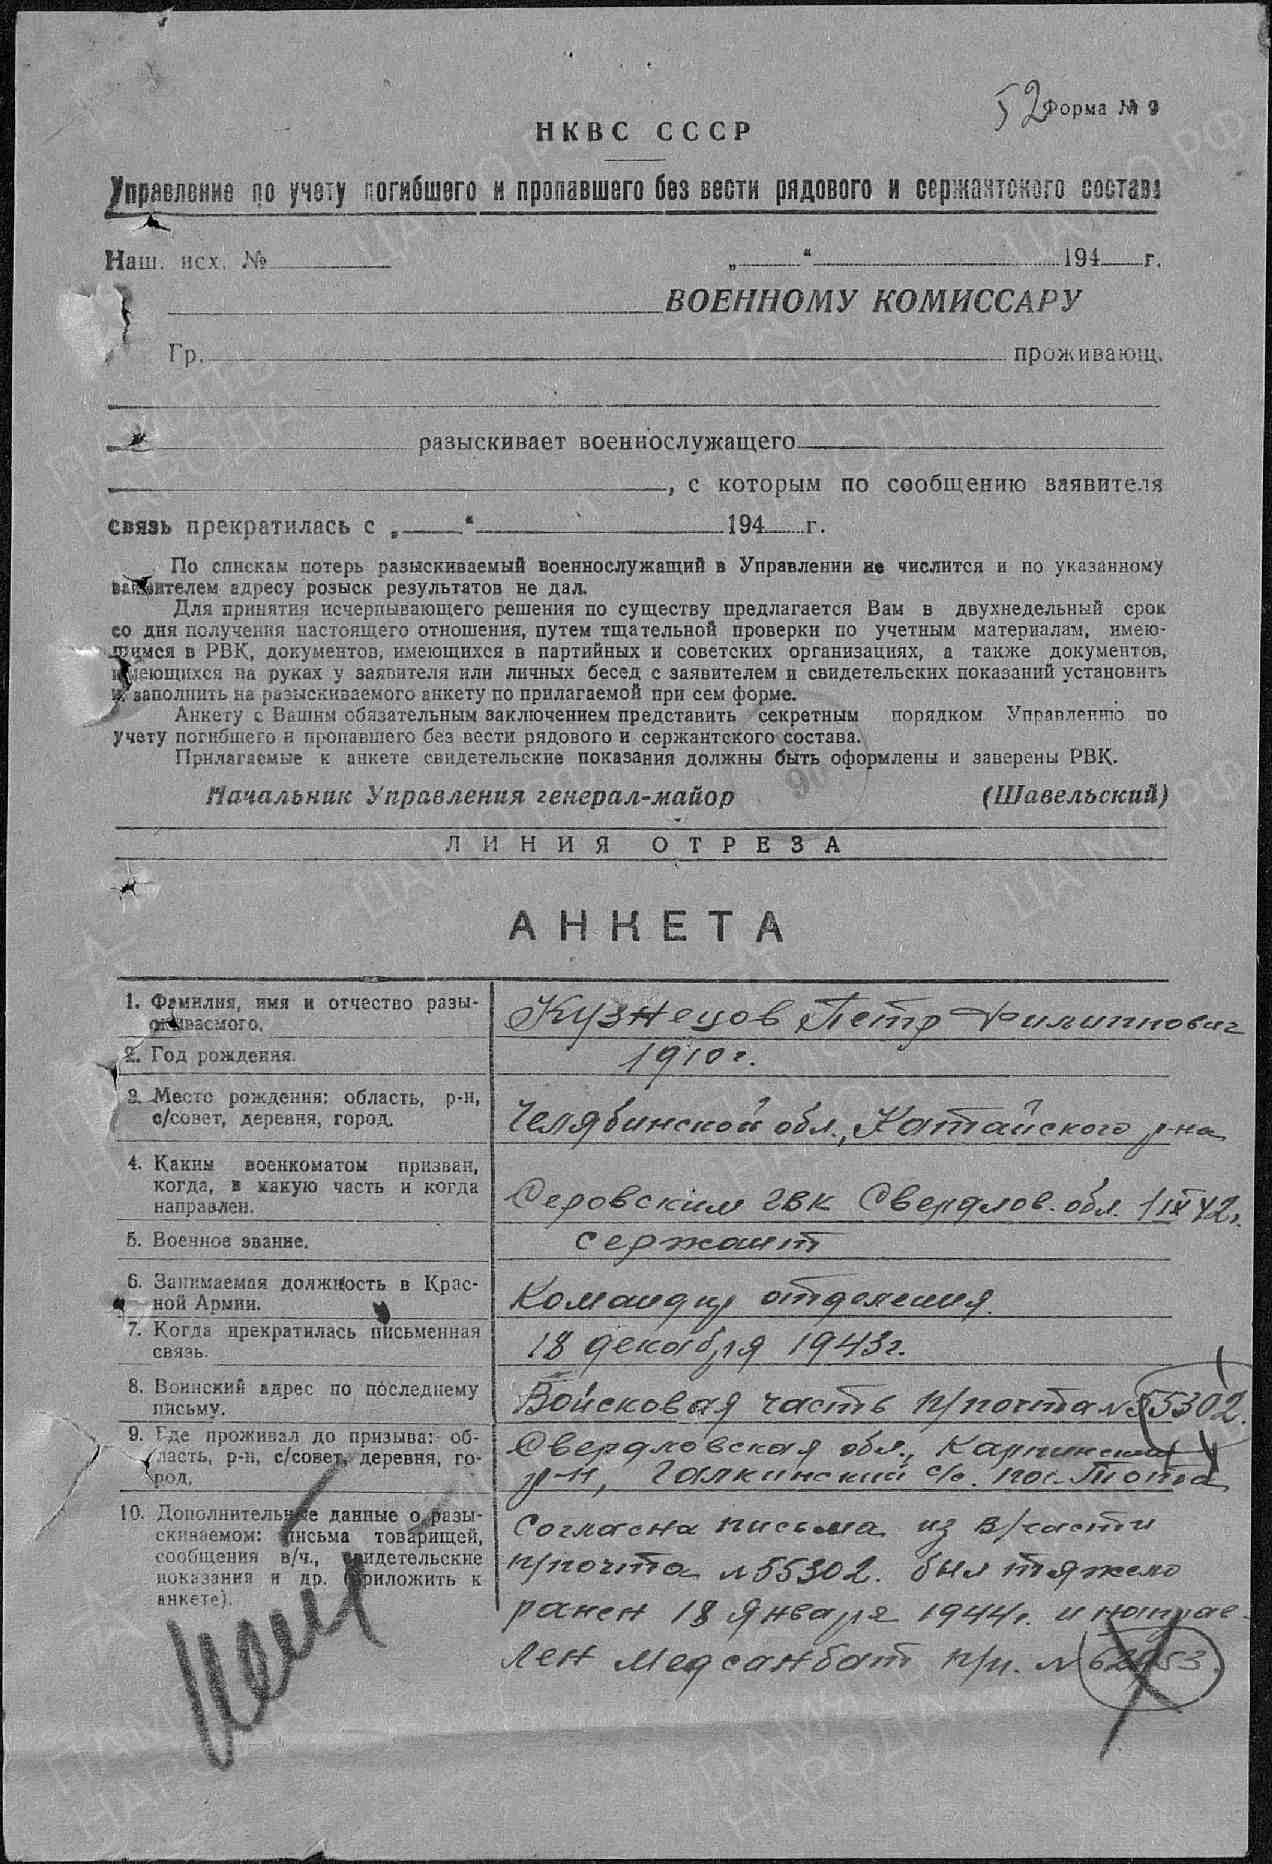 52 Форма № 9
НКВС СССР
Управление по учету погибшего и пропавшего без вести рядового и сержантского состава
Наш. исх. № „ “ 194 г.
ВОЕННОМУ КОМИССАРУ
Гр. проживающ.
разыскивает военнослужащего
, с которым по сообщению заявителя
связь прекратилась с „ “ 194 г.
По спискам потерь разыскиваемый военнослужащий в Управлении не числится и по указанному
заявителем адресу розыск результатов не дал.
Для принятия исчерпывающего решения по существу предлагается Вам в двухнедельный срок
со дня получения настоящего отношения, путем тщательной проверки по учетным материалам, имею-
щимся в РВК, документов, имеющихся в партийных и советских организациях, а также документов,
имеющихся на руках у заявителя или личных бесед с заявителем и свидетельских показаний установить
и заполнить на разыскиваемого анкету по прилагаемой при сем форме.
Анкету с Вашим обязательным заключением представить секретным порядком Управлению по
учету погибшего и пропавшего без вести рядового и сержантского состава.
Прилагаемые к анкете свидетельские показания должны быть оформлены и заверены РВК.
Начальник Управления генерал-майор (Шавельский)
ЛИНИЯ ОТРЕЗА
АНКЕТА
1. Фамилия, имя и отчество разы-
скиваемого.
Кузнецов Петр Филиппович
2. Год рождения.
1910 г.
3. Место рождения: область, р-н,
с/совет, деревня, город.
Челябинской обл., Катайского р-на
4. Каким военкоматом призван,
когда, в какую часть и когда
направлен.
Серовским ГВК Свердлов. обл. 1/IX 42 г.
5. Военное звание.
сержант
6. Занимаемая должность в Крас-
ной Армии.
Командир отделения
7. Когда прекратилась письменная
связь.
18 декабря 1943 г.
8. Воинский адрес по последнему
письму.
Войсковая часть п/почта № 55302.
9. Где проживал до призыва: об-
ласть, р-н, с/совет, деревня, го-
род.
Свердловская обл., Карпинский
р-н, Галкинский с/с. пос. Тота
10. Дополнительные данные о разы-
скиваемом: письма товарищей,
сообщения в/ч., свидетельские
показания и др. (приложить к
анкете).
Согласна письма из в/части
п/почта № 55302. был тяжело
ранен 18 января 1944 г. и направ-
лен Медсанбат п/п. №